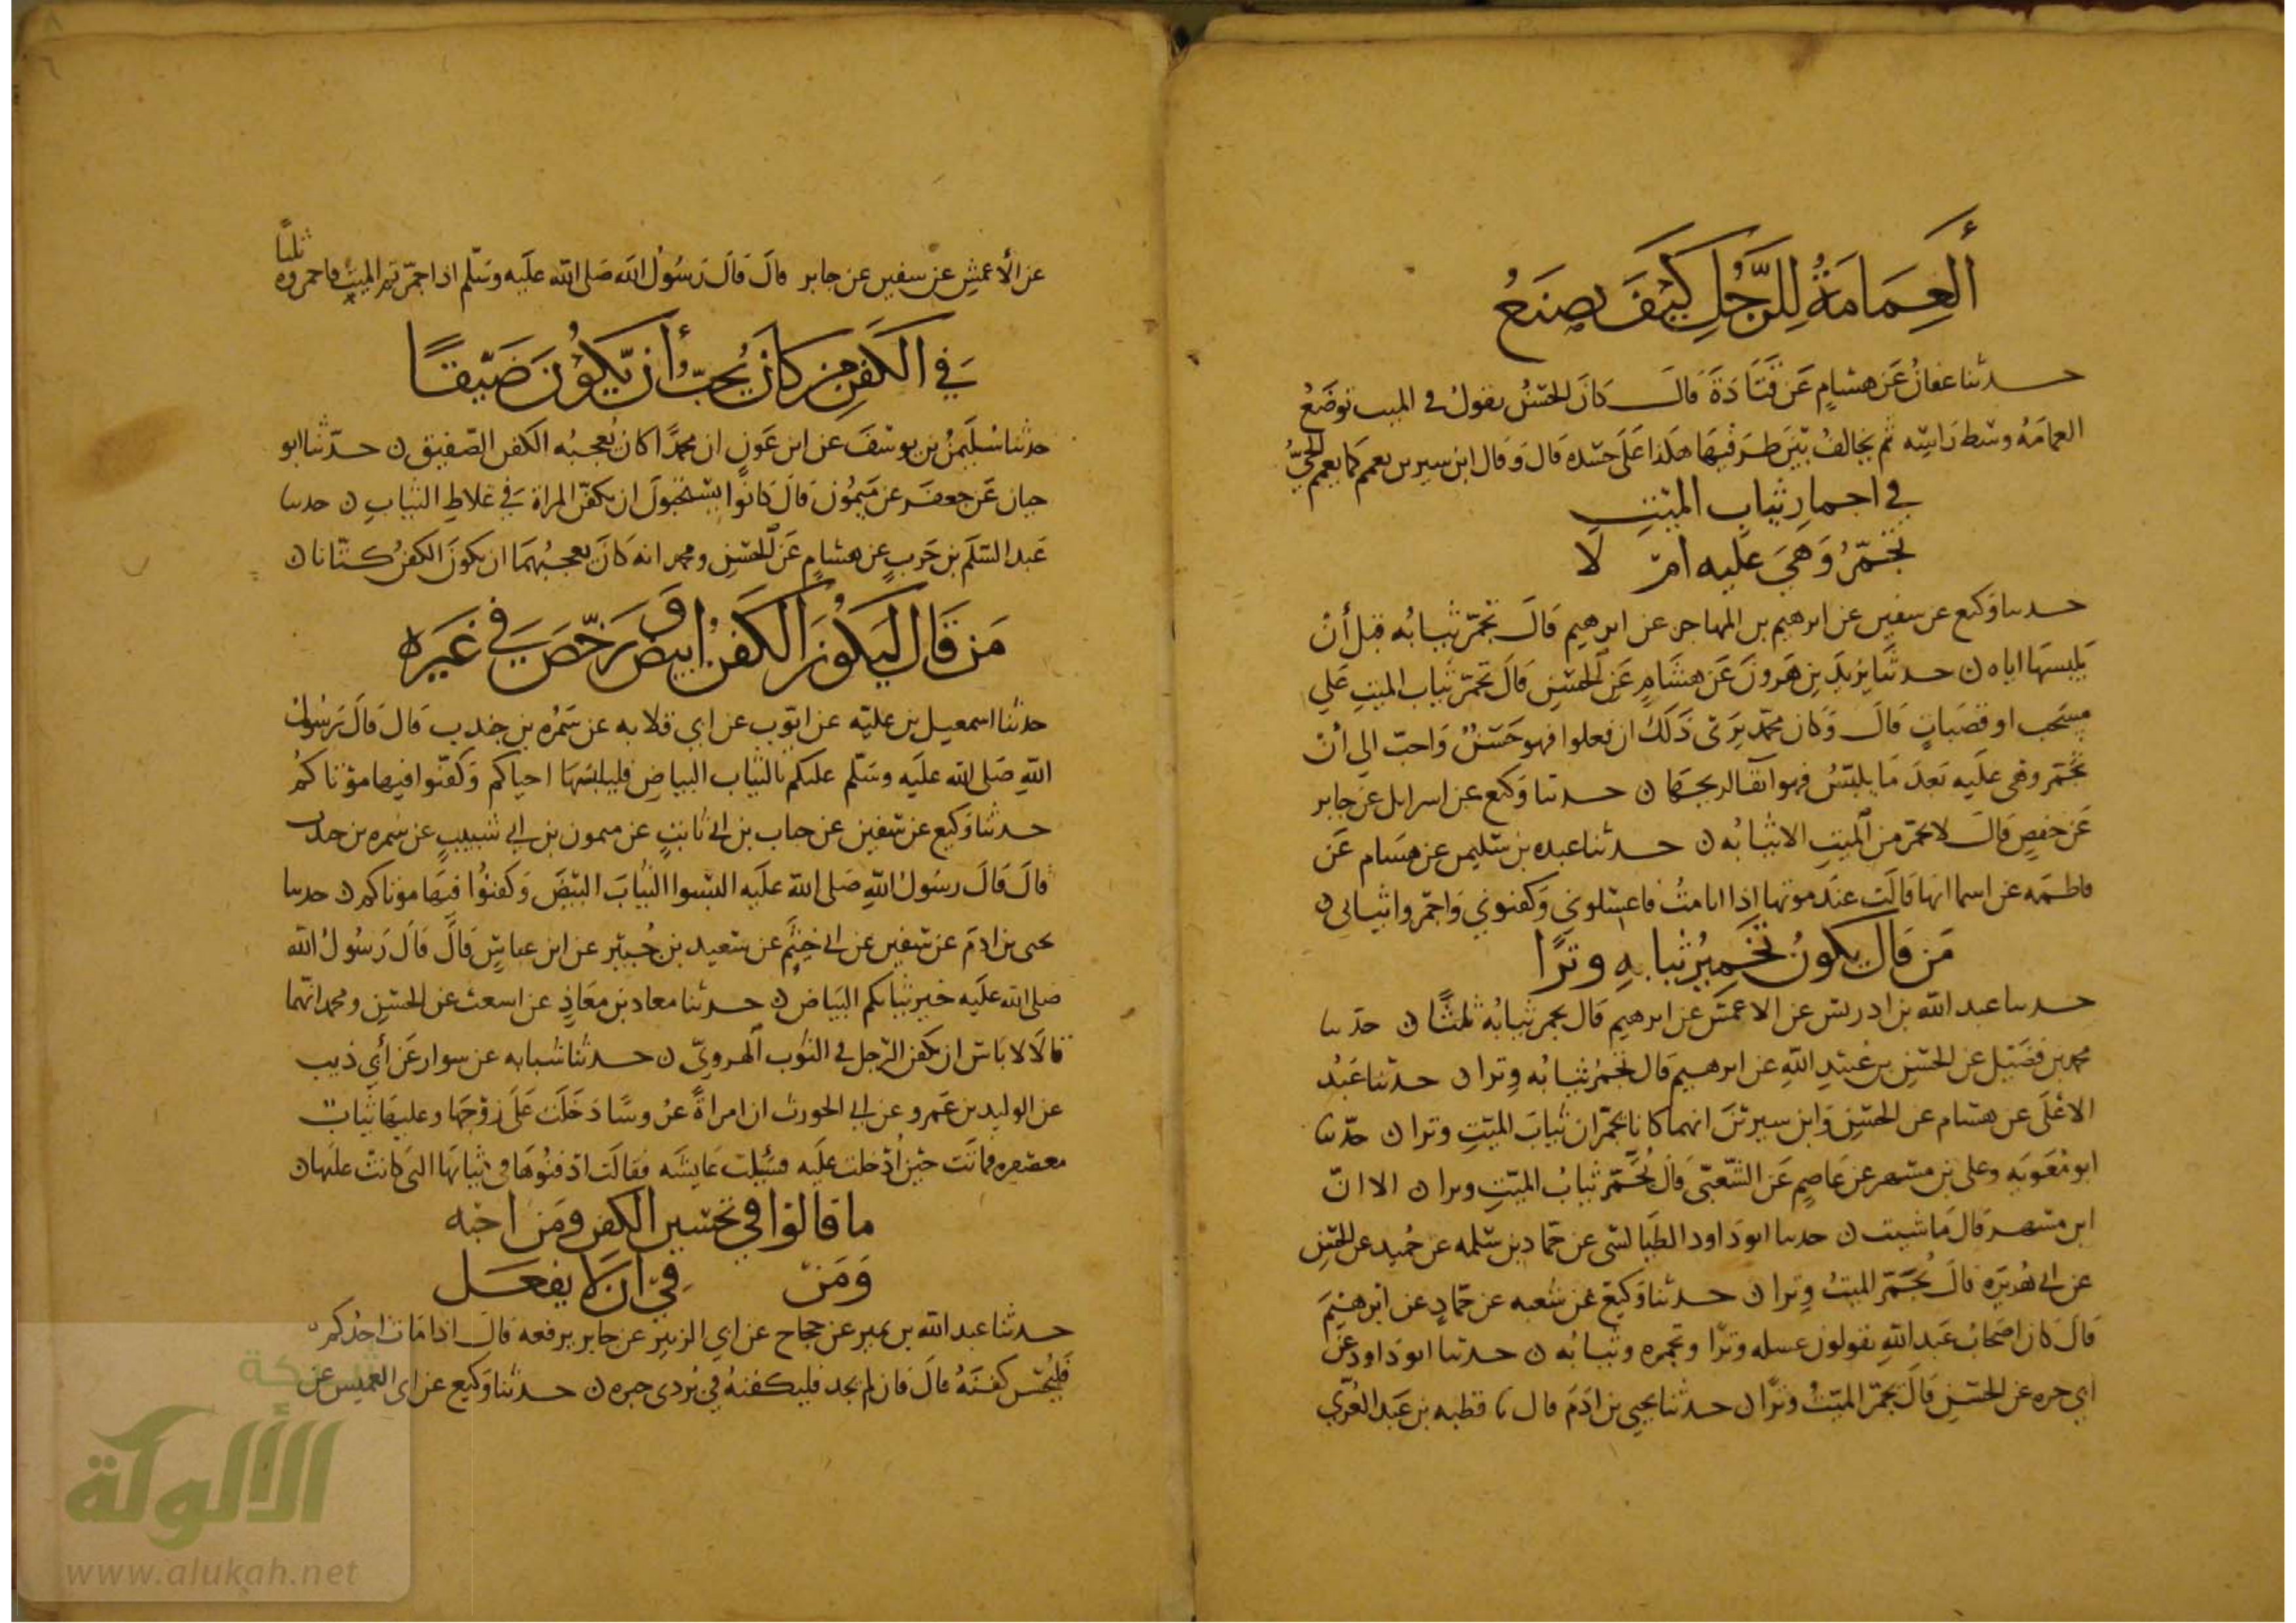 ألعمامة للرجل كيف يصنع
حدثنا عفان عن هشام عن قتادة قال كان الحسن يقول في الميت توضع
العمامة وسط راسه ثم يخالف بين طرفيها هكذا على جسده قال وقال ابن سيرين يعمم كما يعمم الحي
في اجمار ثياب الميت
تجمر وهي عليه ام لا
حدثنا وكيع عن سفين عن ابرهيم بن المهاجر عن ابرهيم قال تجمر ثيابه قبل أن
يلبسها اياه ن حدثنا يزيد بن هرون عن هشام عن الحسن قال تجمر ثياب الميت على
مشجب او قصبات قال وكان محمد يرى ذلك ان فعلوا فهو حسن واحب الي أن
تجمر وهي عليه بعد ما يلبس فهو ابقا لريحها ن حدثنا وكيع عن اسرايل عن جابر
عن حفص قال لا يجمر من الميت الا ثيابه ن حدثنا عبده بن سليمن عن هشام عن
فاطمه عن اسما انها قالت عند موتها إذا انا مت فاغسلوني وكفنوني واجمروا ثيابي ن
من قال يكون تجمير ثيابه وترا
حدثنا عبد الله بن ادريس عن الاعمش عن ابرهيم قال يجمر ثيابه ثلثا ن حدثنا
محمد بن فضيل عن الحسن بن عبيد الله عن ابرهيم قال تجمر ثيابه وترا ن حدثنا عبد
الاعلى عن هشام عن الحسن وابن سيرين انهما كانا يجمران ثياب الميت وترا ن حدثنا
ابو معوية وعلى بن مسهر عن عاصم عن الشعبي قال تجمر ثياب الميت وترا ن الا ان
ابن مسهر قال ما شيت ن حدثنا ابو داود الطيالسي عن حماد بن سلمه عن حميد عن الحسن
عن ابي هريره قال يجمر الميت وترا ن حدثنا وكيع عن شعبه عن حماد عن ابرهيم
قال كان اصحاب عبد الله يقولون غسله وترا وتجمره وثيابه ن حدثنا ابو داود عن
ابي حره عن الحسن قال يجمر الميت وترا ن حدثنا يحيى بن ادم قال نا قطبه بن عبد العزى
عن الأعمش عن سفين عن جابر قال قال رسول الله صلى الله عليه وسلم اذا جمرتم الميت فاجمروه ثلثا
في الكفن من كان يحب أن يكون ضيقا
حدثنا سليمن بن يوسف عن ابن عون ان محمدا كان يعجبه الكفن الصفيق ن حدثنا ابو
حيان عن جعفر عن ميمون قال كانوا يستحبون ان يكفن المراة في غلاظ الثياب ن حدثنا
عبد السلم بن حرب عن هشام عن الحسن ومحمد انه كان يعجبهما ان يكون الكفن كتانا ن
من قال ليكون الكفن ابيض ورخص في غيره
حدثنا اسمعيل بن عليه عن ايوب عن ابي قلابه عن سمره بن جندب قال قال رسول
الله صلى الله عليه وسلم عليكم بالثياب البياض فليلبسها احياكم وكفنوا فيها موتاكم
حدثنا وكيع عن سفين عن حبيب بن ابي ثابت عن ميمون بن ابي شبيب عن سمره بن جندب
قال قال رسول الله صلى الله عليه البسوا الثياب البيض وكفنوا فيها موتاكم ن حدثنا
يحيى بن ادم عن سفين عن ابي خثيم عن سعيد بن جبير عن ابن عباس قال قال رسول الله
صلى الله عليه خير ثيابكم البياض ن حدثنا معاذ بن معاذ عن اشعث عن الحسن ومحمد انهما
قالا لا باس ان يكفن الرجل في الثوب الهروي ن حدثنا شبابه عن سوار عن أبي ذيب
عن الوليد بن عمرو عن ابي الحورث ان امراة عروسا دخلت على زوجها وعليها ثياب
معصفره فماتت حين أدخلت عليه فسيلت عايشه فقالت ادفنوها في ثيابها التي كانت عليها ن
ما قالوا في تحسين الكفن ومن احبه
ومن في ان لا يفعل
حدثنا عبد الله بن نمير عن حجاج عن ابي الزبير عن جابر يرفعه قال اذا مات احدكم
فليحسن كفنه قال فان لم يجد فليكفنه في بردى حبره ن حدثنا وكيع عن ابي العميس عن
شبكة
الألوكة
www.alukah.net